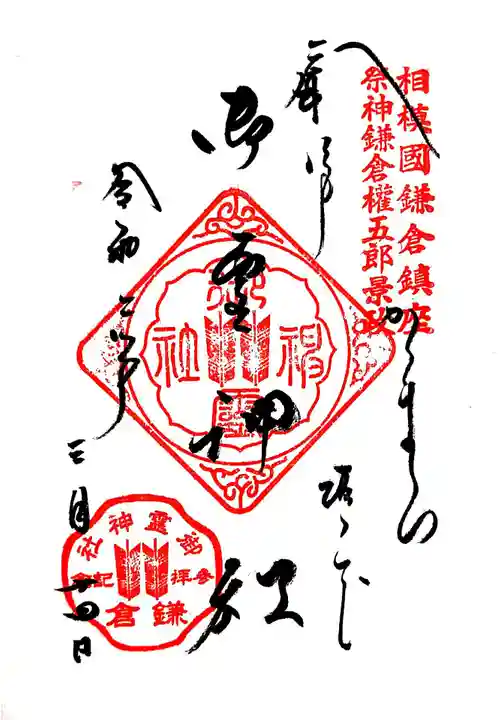 相模國鎌倉鎮座
祭神鎌倉權五郎景政
かまくら
坂ノ下
奉拝
御霊神社
御靈神社
令和二年
三月十四日
御靈神社
参拝記念
鎌倉